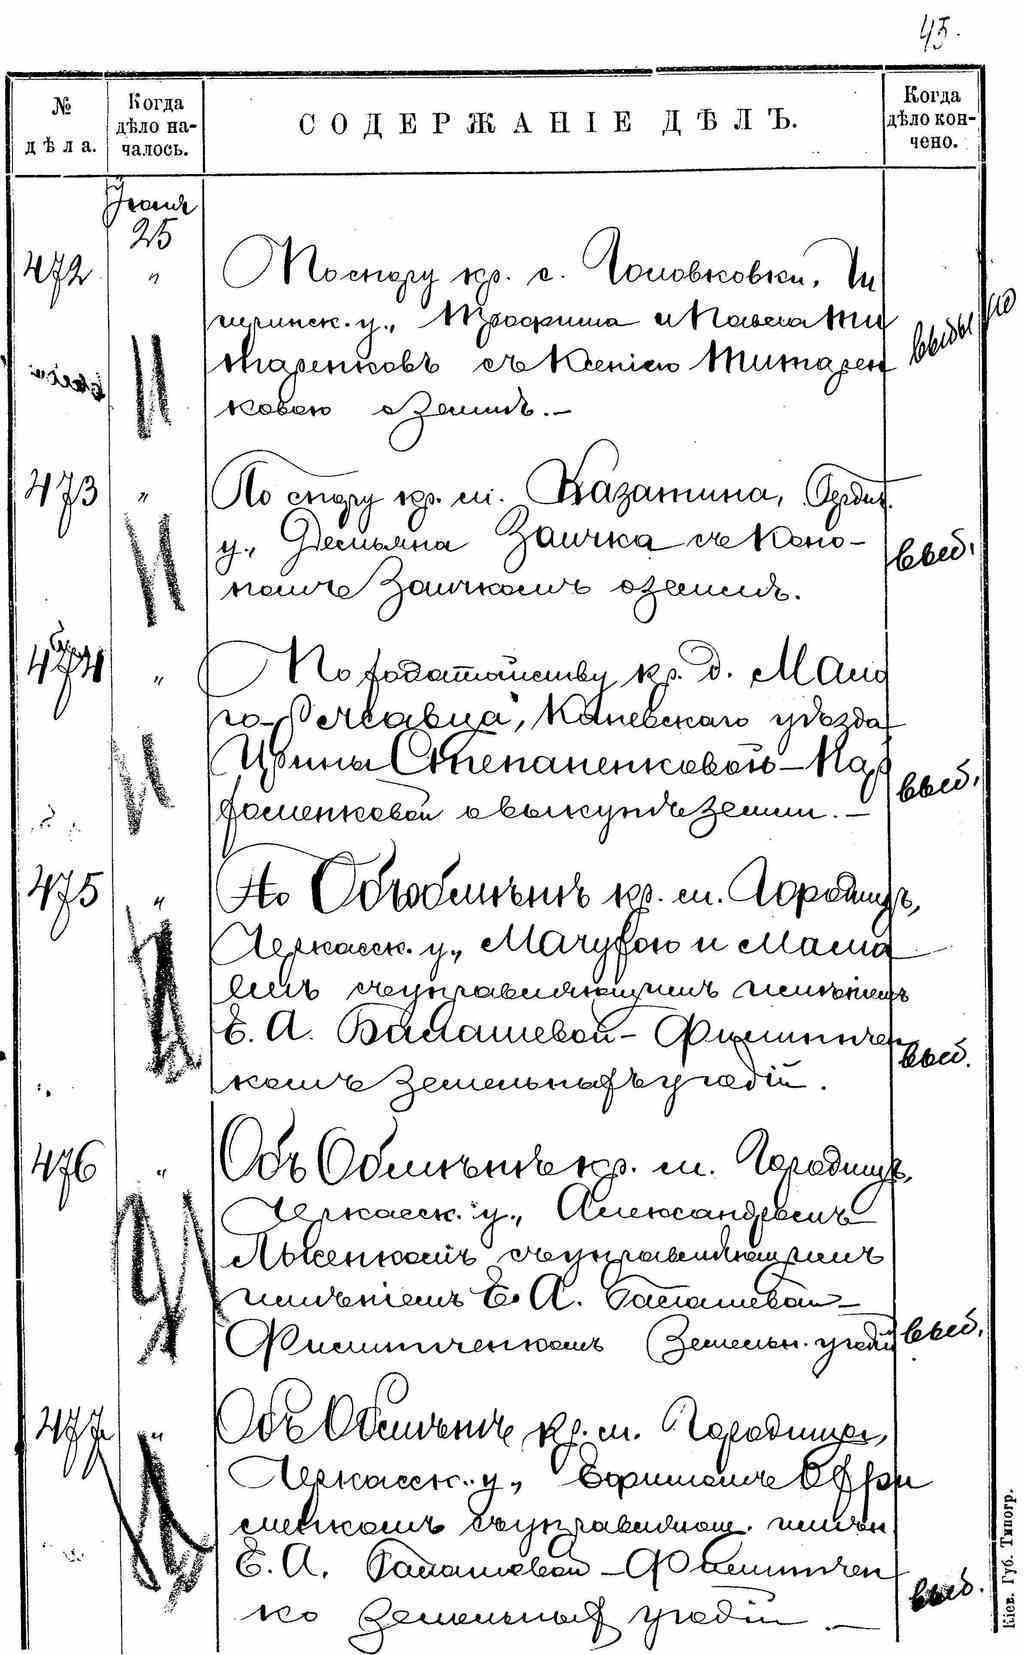 45.
№ дѣла.
Когда дѣло началось.
СОДЕРЖАНІЕ ДѢЛЪ.
Когда дѣло кончено.
Іюня
25
472 " По спору кр. с. Головковки, Чи
гиринск. у., Трофима и Павла Ти
таренковъ съ Ксеніею Титарен
ковою о землѣ.—
выбыло
473 " По спору кр. м. Казатина, Бердич.
у., Демьяна Заичка съ Коно-
номъ Заичкомъ о землѣ.
выб.
474 " По ходатайству кр. д. Мало
го-Ржавца, Каневскаго уѣзда
Ирины Степаненковой-Пар
хоменковой о выкупѣ земли.—
выб.
475 " По Обѣ обмѣнѣ кр. м. Городища,
Черкасск. у., Мачухою и
съ управляющимъ имѣніемъ
Е. А. Балашевой- Филипчен
комъ земельныхъ угодій.
выб.
476 " Объ Обмѣнѣ кр. м. Городища,
Черкасск. у., Александромъ
Лысенкомъ съ управляющимъ
имѣніемъ Е. А. Балашевой-
Филипченкомъ Земельн. угодій
выб.
477 " Объ Обмѣнѣ кр. м. Городища,
Черкасск. у., Ефимомъ Офри
менкомъ съ управляющ. имѣн.
Е. А. Балашевой-Филипчен
ко земельных угодій.—
выб.
Кіев. Губ. Типогр.